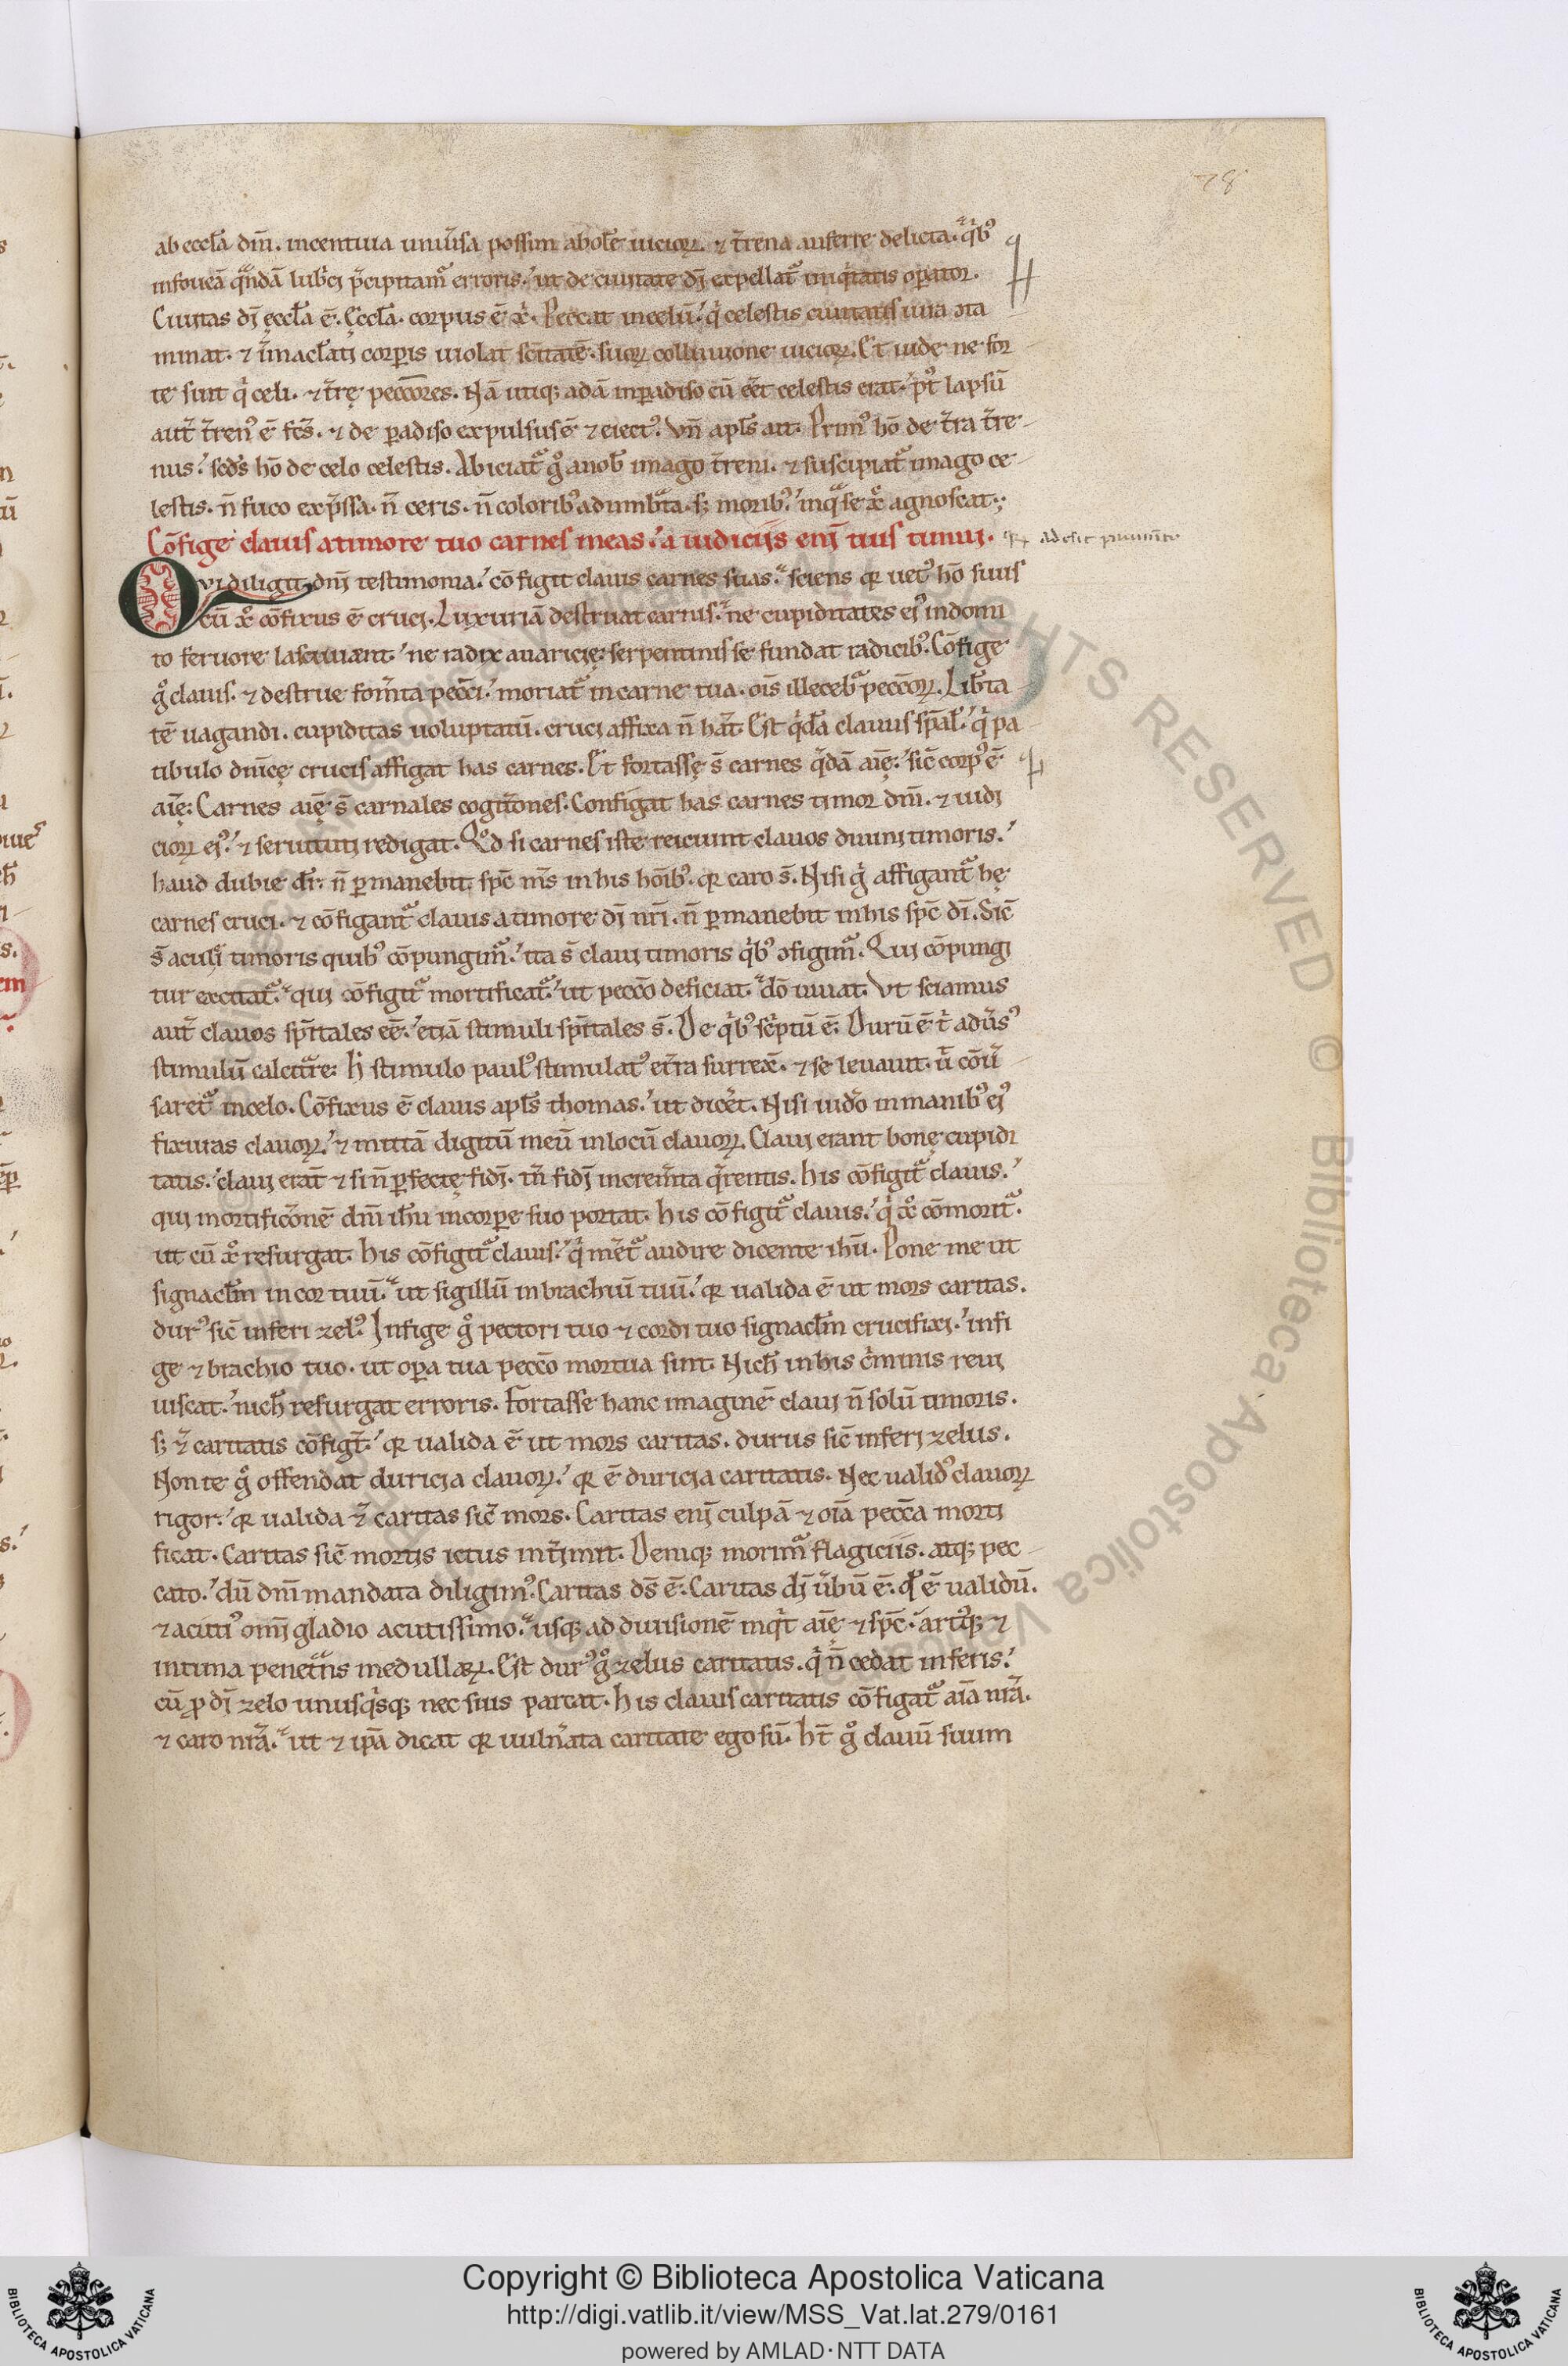 78
ab eccl̄a dn̄i. incentiua uniu̾sa possim abol̾e uicioꝝ. ⁊ t̾rena auferre delicta. qͥbꝰ
in foueā qͣndā lubͥci p̾cipitamꝰ erroris.ʼ ut de ciuitate dī expellatᷓ iniqͥtatis oꝑator.
Ciuitas dī ęccl̄a ē. Ęccl̄a. corpus ē xp̄i. Peccat in celū.ʼ qͥ celestis ciuitatis iura ꝯta
minat. ⁊ īmacl̄ati corꝑis uiolat sc̄itatē. suoꝝ colluuione uicioꝝ. Et uide ne for
te sint qͥ celi. ⁊ t̾rę pecc̄ores. Nā utiqꝫ adā in ꝑadiso cū ēet celestis erat.ʼ pꝰt lapsū
aut̄ t̾renꝰ ē fc̄s. ⁊ de ꝑadiso expulsus ē ⁊ eiectꝰ. Vn̄ apl̄s ait. Primꝰ hō de t̾ra t̾re
nus.ʼ sc̄ds hō de celo celestis. Abiciatᷓ gͦ a nob̄ imago t̾reni. ⁊ suscipiatᷓ imago ce
lestis. n̄ fuco exp̾ssa. n̄ ceris. n̄ coloribꝰ adumbͣta. sꝫ moribꝰ.ʼ in qͣ se xp̄c agnoscat.;
Cōfige clauis a timore tuo carnes meas.ʼ a iudiciis enī tuis timui.
Qvi diligit dn̄i testimonia.ʼ cōfigit clauis carnes suas.ʼ sciens qꝛ uetꝰ hō suus
cū xp̄o cōfixus ē cruci. Luxuriā destruat carnis.ʼ ne cupiditates eiꝰ indomi
to feruore lasciuiant.ʼ ne radix auaricię serpentinis se fundat radicibꝰ. Cōfige
gͦ clauis. ⁊ destrue fom̄ta pecc̄i.ʼ moriatᷓ in carne tua. oīs illecebͣ pecc̄oꝝ. Lib̾ta
tē uagandi. cupiditas uoluptatū. cruci affixa n̄ hab̄at. Est qͥdā clauus sp̄al.ʼ qͥ pa
tibulo dn̄icę crucis affigat has carnes. Et fortassę s̄ carnes qͣdā aīę. sic̄ corpꝰ ē
aīę. Carnes aīę s̄ carnales cogit̄ones. Configat has carnes timor dn̄i. ⁊ iudi
cioꝝ eiꝰ.ʼ ⁊ seruituti redigat. Qd̄ si carnes iste reiciunt clauos diuini timoris.ʼ
haud dubie dr̄. n̄ ꝑmanebit. sp̄c m̄s in his hōibꝰ. qꝛ caro s̄. Nisi gͦ affigantᷓ hę
carnes cruci. ⁊ cōfigantᷓ clauis a timore dī nr̄i. n̄ ꝑmanebit in his sp̄c dī. Sic̄
s̄ aculei timoris quibꝰ cōpungimᷓ.ʼ ita s̄ claui timoris qͥbꝰ ꝯfigimᷓ. Qui cōpungi
tur excitatᷓ.ʼ qui cōfigitᷓ mortificatᷓ.ʼ ut pecc̄o deficiat.ʼ dō uiuat. Vt sciamus
aut̄ clauos sp̄itales ēe.ʼ etiā stimuli sp̄itales s̄. De qͥbꝰ scͥptū ē. Durū ē t̾ adu̾sꝰ
stimulū calcitͣre. Hͦ stimulo paulꝰ stimulatꝰ e t̾ra surrex̄. ⁊ se leuauit. ut̄ cōu̾
saretᷓ in celo. Cōfixus ē clauis apl̄s thomas.ʼ ut dic̾et. Nisi uid̾o in manibꝰ eiꝰ
fixuras clauoꝝ.ʼ ⁊ mittā digitū meū in locū clauoꝝ. Claui erant bonę cupidi
tatis.ʼ claui erāt ⁊ si n̄ ꝑfectę fidī. tn̄ fidī increm̄ta qͣrentis. His cōfigitᷓ clauis.ʼ
qui mortific̄onē dn̄i ih̄u in corꝑe suo portat. His cōfigitᷓ clauis.ʼ qͥ xp̄o cōmoritᷓ.
ut cū xp̄o resurgat. His cōfigitᷓ clauis.ʼ qͥ m̾etᷓ audire dicente ih̄u. Pone me ut
signacl̄m in cor tuū.ʼ ut sigillū in brachiū tuū.ʼ qꝛ ualida ē ut mors caritas.
durꝰ sic̄ inferi zelꝰ. Infige gͦ pectori tuo ⁊ cordi tuo signacl̄m crucifixi.ʼ infi
ge ⁊ brachio tuo. ut oꝑa tua pecc̄o mortua sint. Nich̄ in his cͥminis reui
uiscat.ʼ nich̄ resurgat erroris. Fortasse hanc imaginē claui n̄ solū timoris.
sꝫ ⁊ caritatis cōfigit.ʼ qꝛ ualida ē ut mors caritas. durus sic̄ inferi zelus.
Non te gͦ offendat duricia clauoꝝ.ʼ qꝛ ē duricia caritatis. Nec ualidꝰ clauoꝝ
rigor.ʼ qꝛ ualida ⁊ caritas sic̄ mors. Caritas enī culpā ⁊ oīa pecc̄a morti
ficat. Caritas sic̄ mortis ictus int̾imit. Deniqꝫ morimᷓ flagiciis. atqꝫ pec
cato.ʼ dū dn̄i mandata diligimꝰ. Caritas ds̄ ē. Caritas dī u̾bū ē. qd̄ ē ualidū.
⁊ acutiꝰ omī gladio acutissimo.ʼ usqꝫ ad diuisionē inqͥt aīę ⁊ sp̄c. artuūqꝫ ⁊
intima penetͣns medullaꝝ. Est durꝰ gͦ zelus caritatis. qͥ n̄ cedat inferis.ʼ
cū ꝓ dī zelo unusqͥsqꝫ nec suis parcat. His clauis caritatis cōfigatᷓ aīa nr̄a.
⁊ caro nr̄a.ʼ ut ⁊ ip̄a dicat qꝛ uuln̾ata caritate ego sū. Ht̄ gͦ clauū suum
ALL RIGHTS RESERVED © Biblioteca Apostolica Vaticana
Copyright © Biblioteca Apostolica Vaticana
http://digi.vatlib.it/view/MSS_Vat.lat.279/0161
powered by AMLAD·NTT DATA
BIBLIOTECA APOSTOLICA VATICANA
BIBLIOTECA APOSTOLICA VATICANA